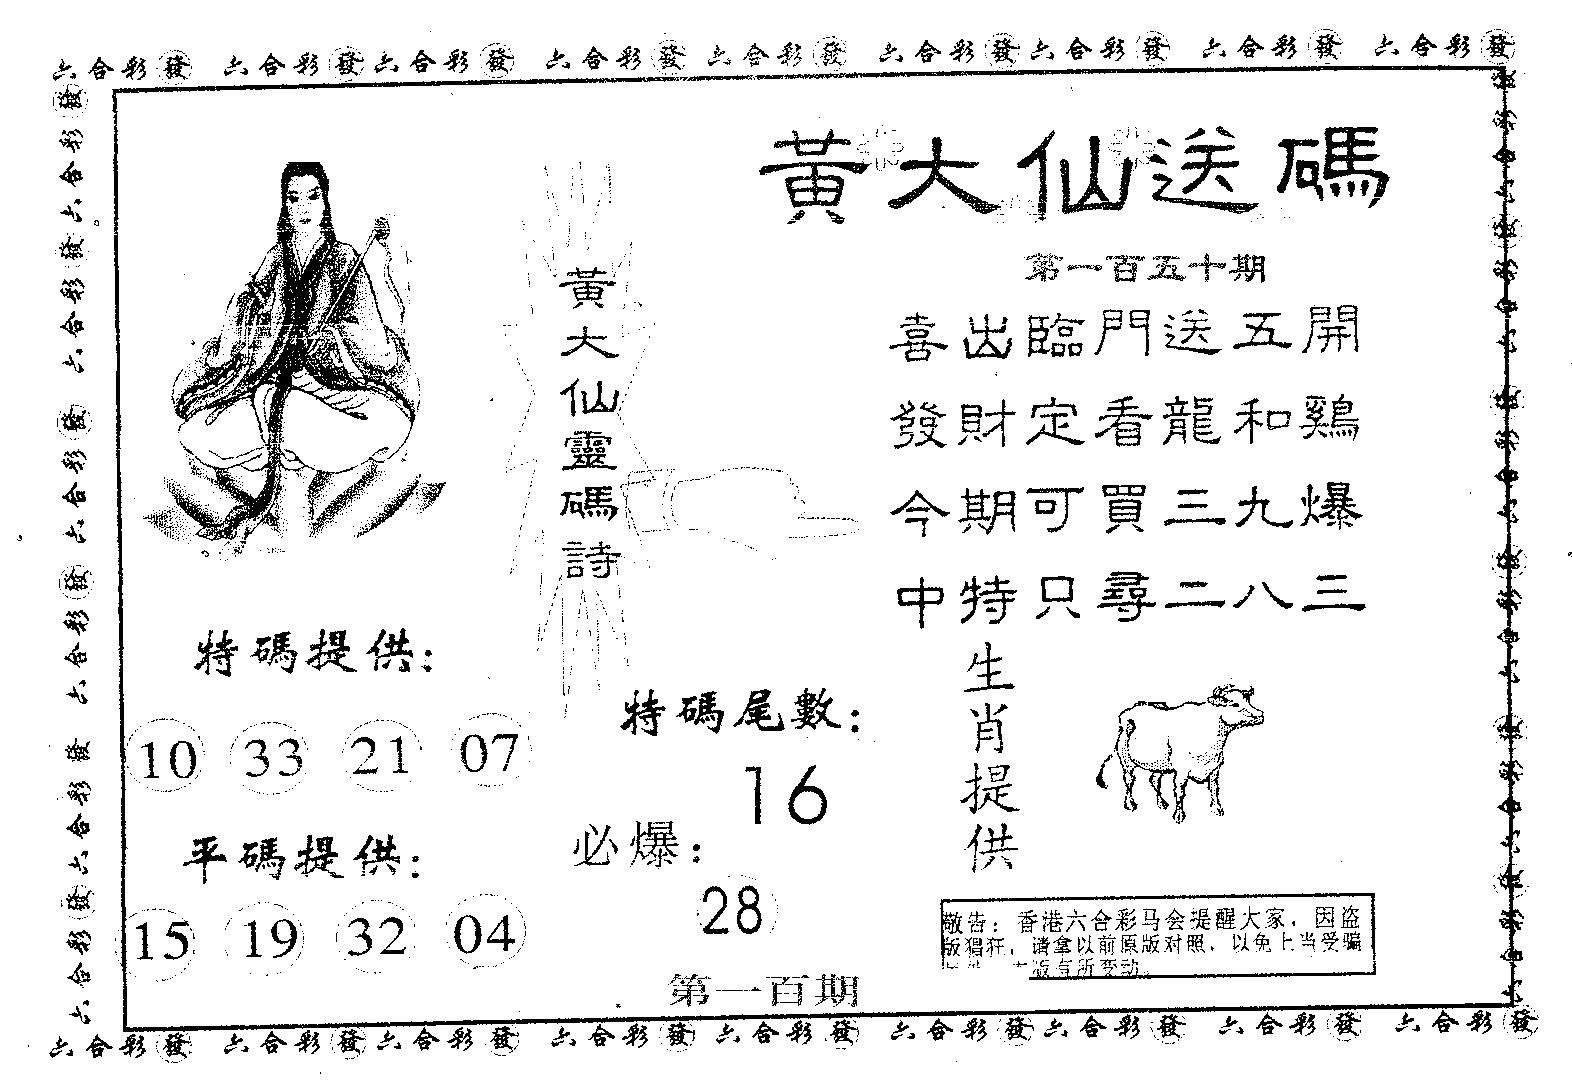 六合彩發 六合彩發 六合彩發 六合彩發 六合彩發 六合彩發 六合彩發 六合彩發 六合彩發
黃大仙送碼
第一百五十期
喜出臨門送五開
發財定看龍和鷄
今期可買三九爆
中特只尋二八三
黃大仙靈碼詩
特碼提供：
10 33 21 07
平碼提供：
15 19 32 04
特碼尾數：
16
必爆：
28
第一百期
生肖提供
敬告：香港六合彩马会提醒大家，因盗
版猖狂，请拿以前原版对照，以免上当受骗
版有所变动。
六合彩發 六合彩發 六合彩發 六合彩發 六合彩發 六合彩發 六合彩發 六合彩發 六合彩發